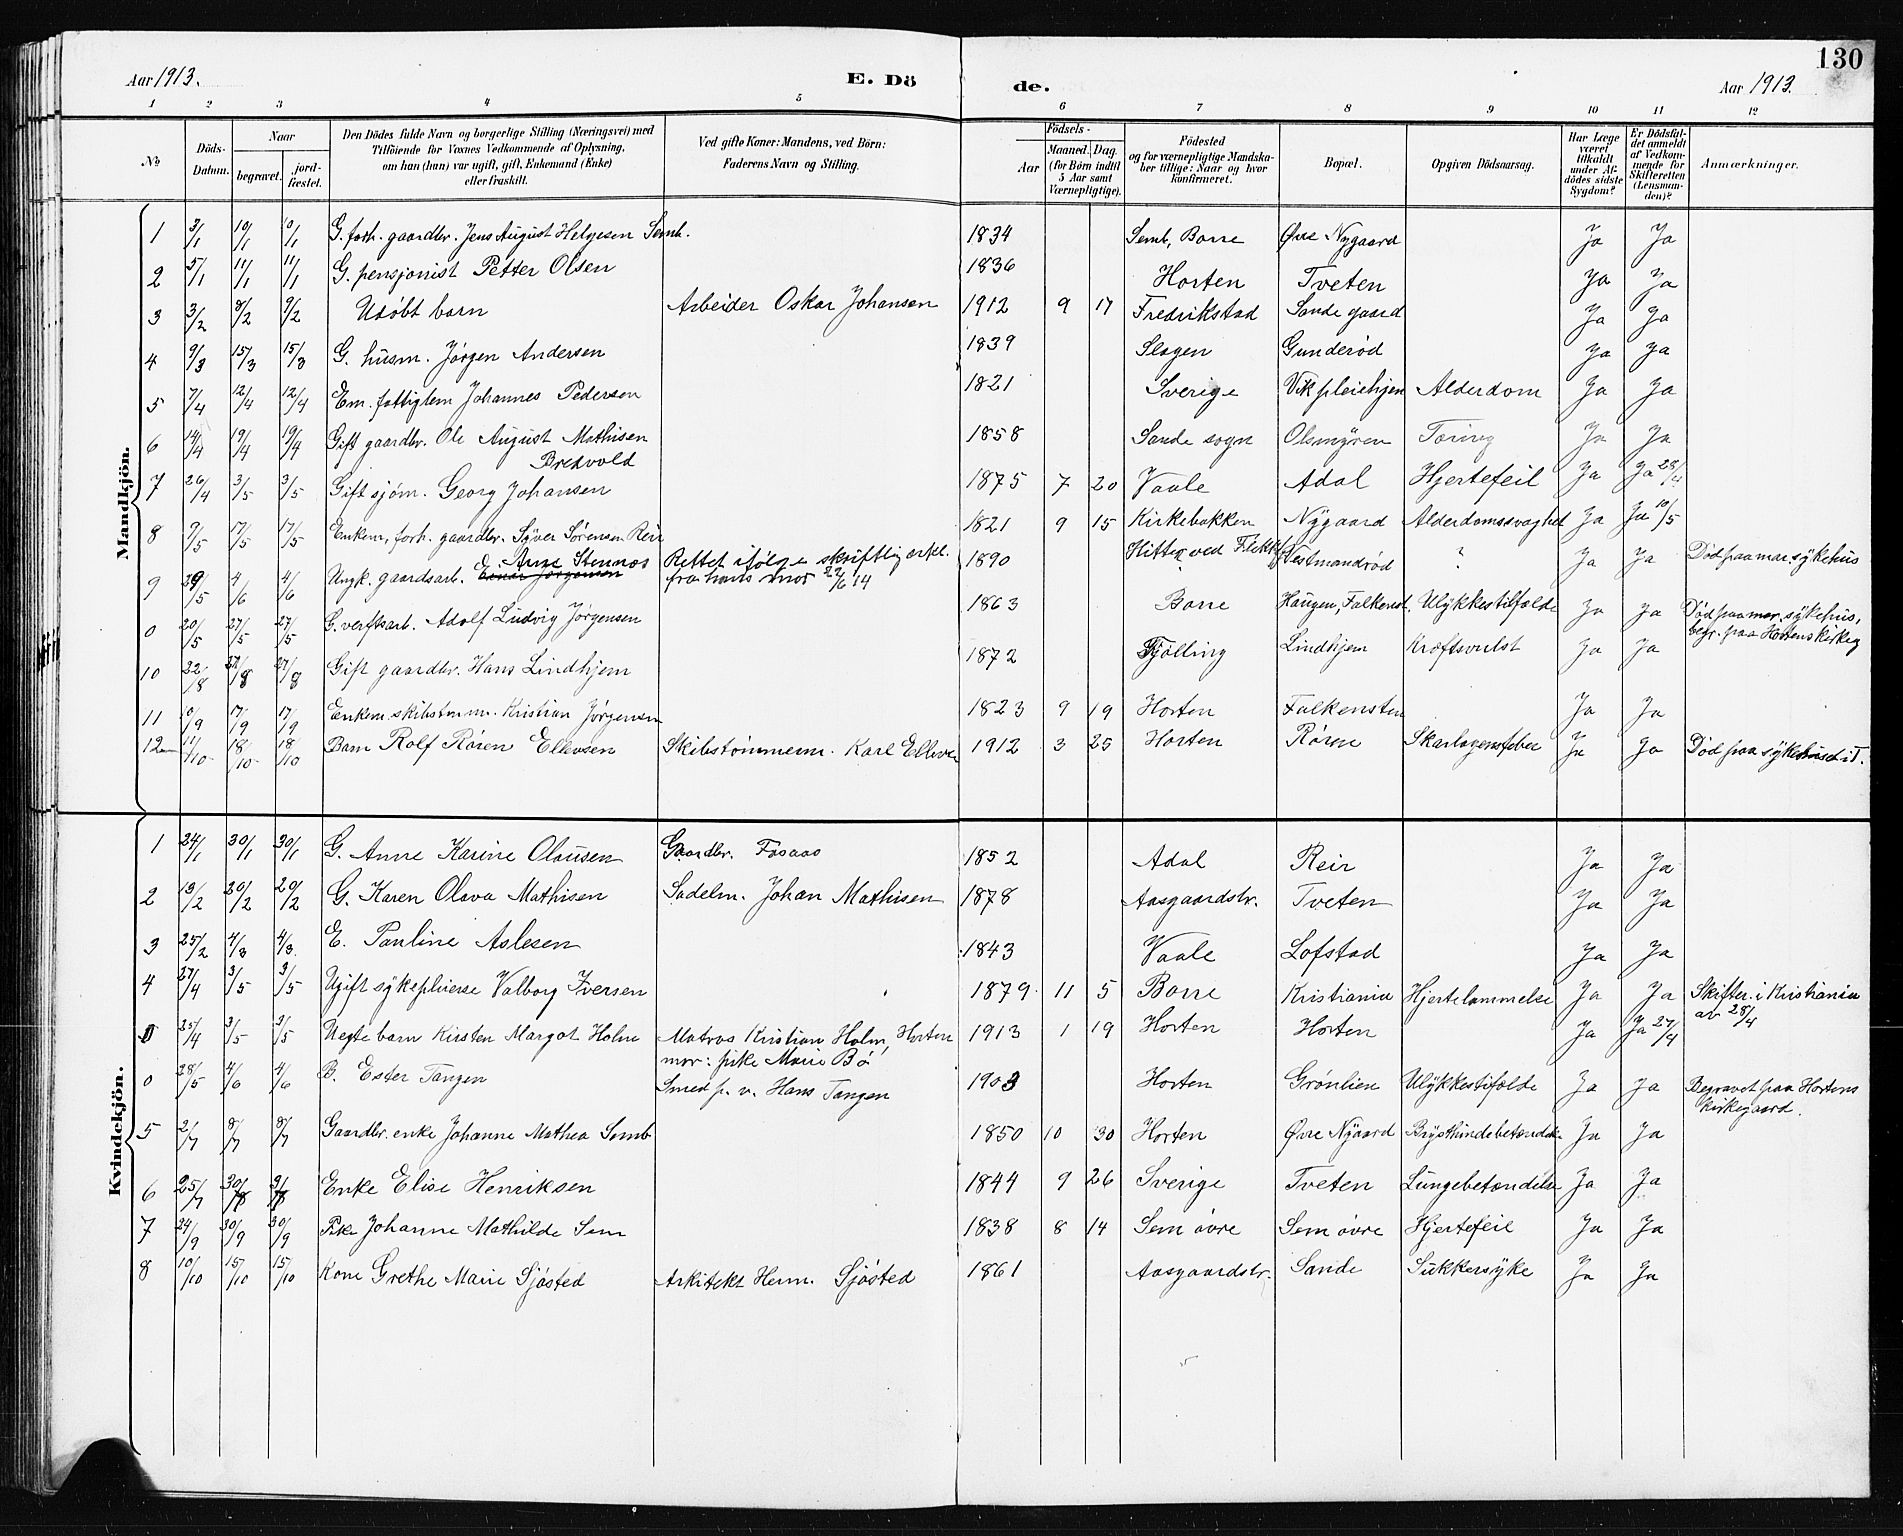 130
Aar 1913. E. Dö de. Aar 1913.
1 2 3 4 5 6 7 8 9 10 11 12
No
Döds-Datum.
Naar
begravet.
jord-fæstet.
Den Dödes fulde Navn og borgerlige Stilling (Næringsvei) med
Tilföiende for Voxnes Vedkommende af Oplysning,
om han (hun) var ugift, gift, Enkemand (Enke)
eller fraskilt.
Ved gifte Koner: Mandens, ved Börn:
Faderens Navn og Stilling.
Födsels-
Aar
Maaned. Dag.
(for Börn indtil
5 Aar samt
Værnepligtige).
Födested
og for værnepligtige Mandska-
ber tillige: Naar og hvor
konfirmeret.
Bopæl.
Opgiven Dödsaarsag.
Har Læge
været
tilkaldt
under Af-
dödes sidste
Sygdom?
Er Dödsfal-
det anmeldt
af Vedkom-
mende for
Skifteretten
(Lensman-
den)?
Anmærkninger.
Mandkjön.
1 3/1 10/1 10/1 G. forh. gaardbr. Jens August Helgesen Semb. 1834 Semb, Borre Øvre Nygaard Ja Ja
2 5/1 11/1 11/1 G. pensjonist Petter Olsen 1836 Horten Tveten Ja Ja
3 3/2 8/2 9/2 Udøbt barn Arbeider Oskar Johansen 1912 9 17 Fredrikstad Sande gaard Ja Ja
4 9/3 15/3 15/3 G. husm. Jørgen Andersen 1839 Slagen Gunderød Ja Ja
5 7/4 12/4 12/4 Em. fattiglem Johannes Pedersen 1821 Sverige Vik pleiehjem Alderdom Ja Ja
6 14/4 19/4 19/4 Gift gaardbr. Ole August Mathisen 1858 Sande sogn Olsmyren Tæring Ja Ja
Brekvold
7 26/4 3/5 3/5 Gift sjøm. Georg Johansen 1875 7 20 Vaale Adal Hjertefeil Ja Ja 28/4
8 9/5 17/5 17/5 Enkem, forh. gaardbr. Syver Sørensen Reir 1821 9 15 Kirkebakken Nygaard Alderdomssvaghet Ja Ja 10/5
Arne Stennes Rettet ifølge skriftlig erkl.
9 29/5 4/6 4/6 Ungk. gaardsarb. Einar Jørgensen fra hans mor 22/6 14 1890 Hitter ved Flekkef Vestmandrød ? Ja Ja Død paa mar. sykehus
0 20/5 27/5 27/5 G. verftsarb. Adolf Ludvig Jørgensen 1863 Borre Haugen, Falkenst. Ulykkestilfælde Ja Ja Død paa mar. sykehus,
begr. paa Hortens kirkeg
10 22/8 27/8 27/8 Gift gaardbr. Hans Lindhjem 1872 Tjølling Lindhjem Kræftsvulst Ja Ja
11 10/9 17/9 17/9 Enkem. skibstømm. Kristian Jørgensen 1823 9 19 Horten Falkensten Ja Ja
12 11/10 18/10 18/10 Barn Rolf Røren Ellevsen Skibstømmerm. Karl Ellevs 1912 3 25 Horten Røren Skarlagensfeber Ja Ja Død paa sykehuset i T.
Kvindekjön.
1 24/1 30/1 30/1 G. Anne Karine Olausen Gaardbr. Fosaas 1852 Adal Reir Ja Ja
2 13/2 20/2 20/2 G. Karen Olava Mathisen Sadelm. Johan Mathisen 1878 Aasgaardstr. Tveten Ja Ja
3 25/2 4/3 4/3. E. Pauline Aslesen 1843 Vaale Lofstad Ja Ja
4 27/4 3/5 3/5 Ugift sykepleierse Valborg Iversen 1879. 11 5 Borre Kristiania Hjertelammelse Ja Ja Skifter. i Kristiania
av 28/4
0 25/4 3/5 3/5 Uegte barn Kirsten Margot Holm Matros Kristian Holm, Horten 1913 1 19 Horten Horten Ja Ja 27/4
mor: pike Marie Bø
0 28/5 4/6 4/6 B. Ester Tangen Smed p. v. Hans Tangen 1903 Horten Grønlien Ulykkestifælde Ja Ja Begravet paa Hortens
kirkegaard.
5 2/7 8/7 8/7 Gaardbr. enke Johanne Mathea Semb 1850 10 30 Horten Øvre Nygaard Brysthindebetændels Ja Ja
6 25/7 30/7 Enke Elise Henriksen 1844 9 26 Sverige Tveten Lungebetændelse Ja Ja
7 24/9 30/9 30/9 Pike Johanne Mathilde Sem 1838 8 14 Sem øvre Sem øvre Hjertefeil Ja Ja
8 10/10 15/10 15/10 Kone Grethe Marie Sjøsted Arkitekt Herm. Sjøsted 1861 Aasgaardstr. Sande Sukkersyke Ja Ja